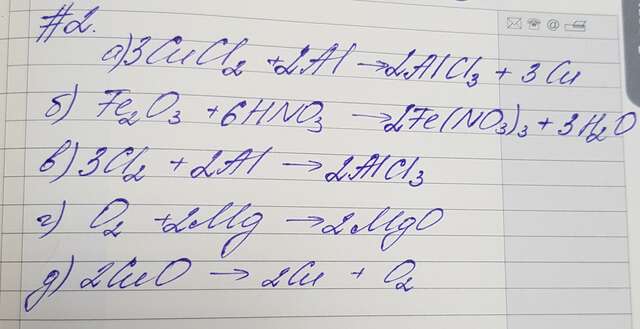 #2.
а) 3CuCl₂ + 2Al → 2AlCl₃ + 3Cu
б) Fe₂O₃ + 6HNO₃ → 2Fe(NO₃)₃ + 3H₂O
в) 3Cl₂ + 2Al → 2AlCl₃
г) O₂ + 2Mg → 2MgO
д) 2CuO → 2Cu + O₂